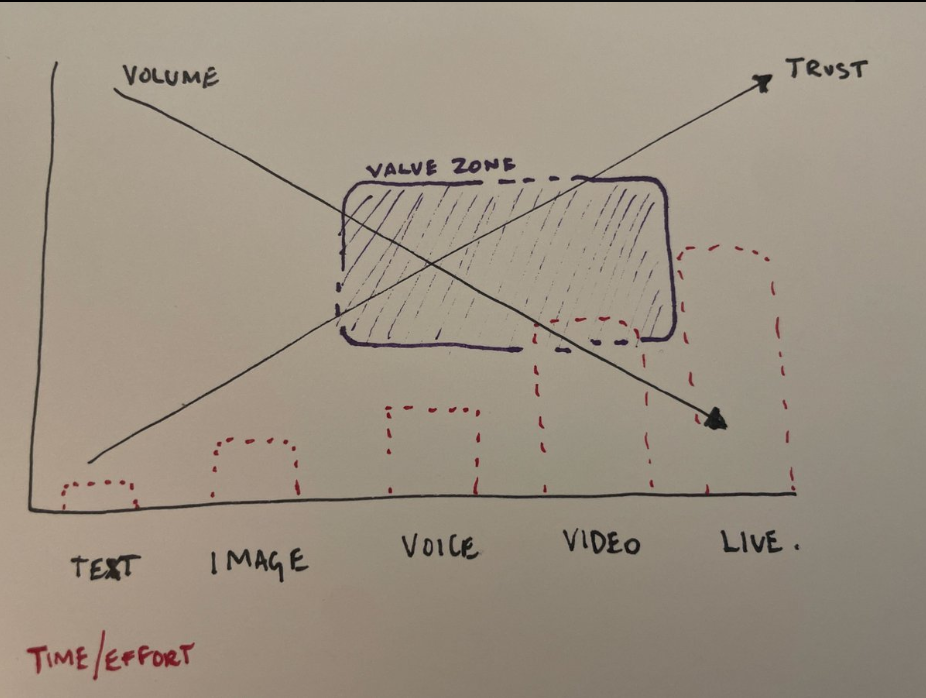 VOLUME
TRUST
VALUE ZONE
TEXT
IMAGE
VOICE
VIDEO
LIVE.
TIME/EFFORT